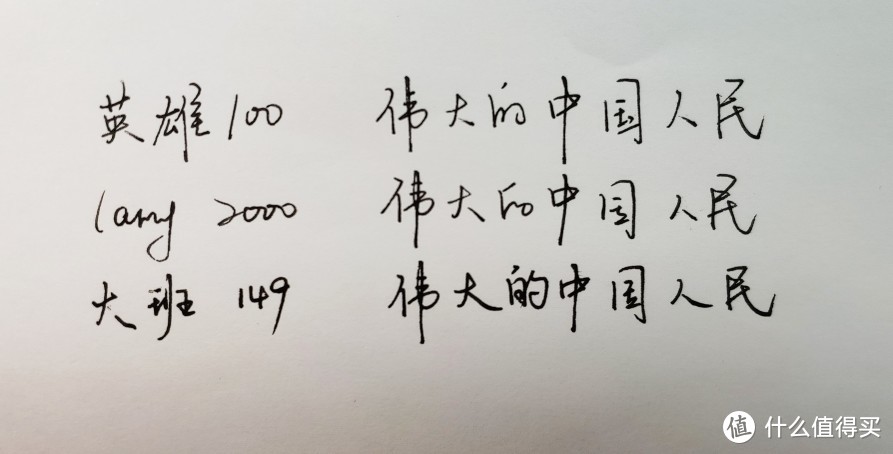 英雄100 伟大的中国人民
lamy 2000 伟大的中国人民
大班 149 伟大的中国人民
值 什么值得买